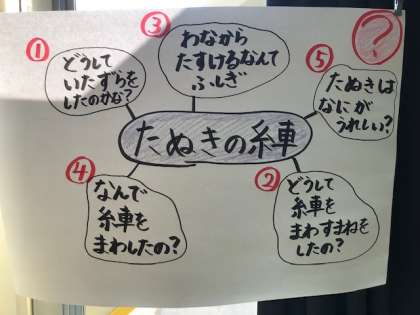 ?
①
どうして
いたずらを
したのかな?
③
わなから
たすけるなんて
ふしぎ
⑤
たぬきは
なにが
うれしい?
たぬきの糸車
④
なんで
糸車を
まわしたの?
②
どうして
糸車を
まわすまねを
したの?